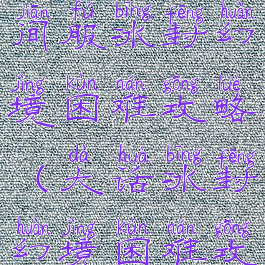 jiǎn fú bīng fēng huàn
简服冰封幻
jìng kùn nán gōng lüè
境困难攻略
dà huà bīng fēng
(大话冰封
huàn jìng kùn nán gōng
幻境困难攻